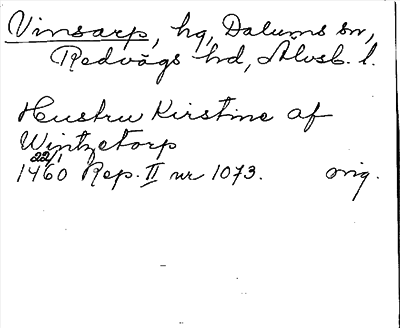 Vinsarp, hg, Dalums sn,
Redvägs hd, Älvsb. l.
Hustru Kirstine af
Wintzetorp
22/1
1460 Rep. II nr 1073. orig.